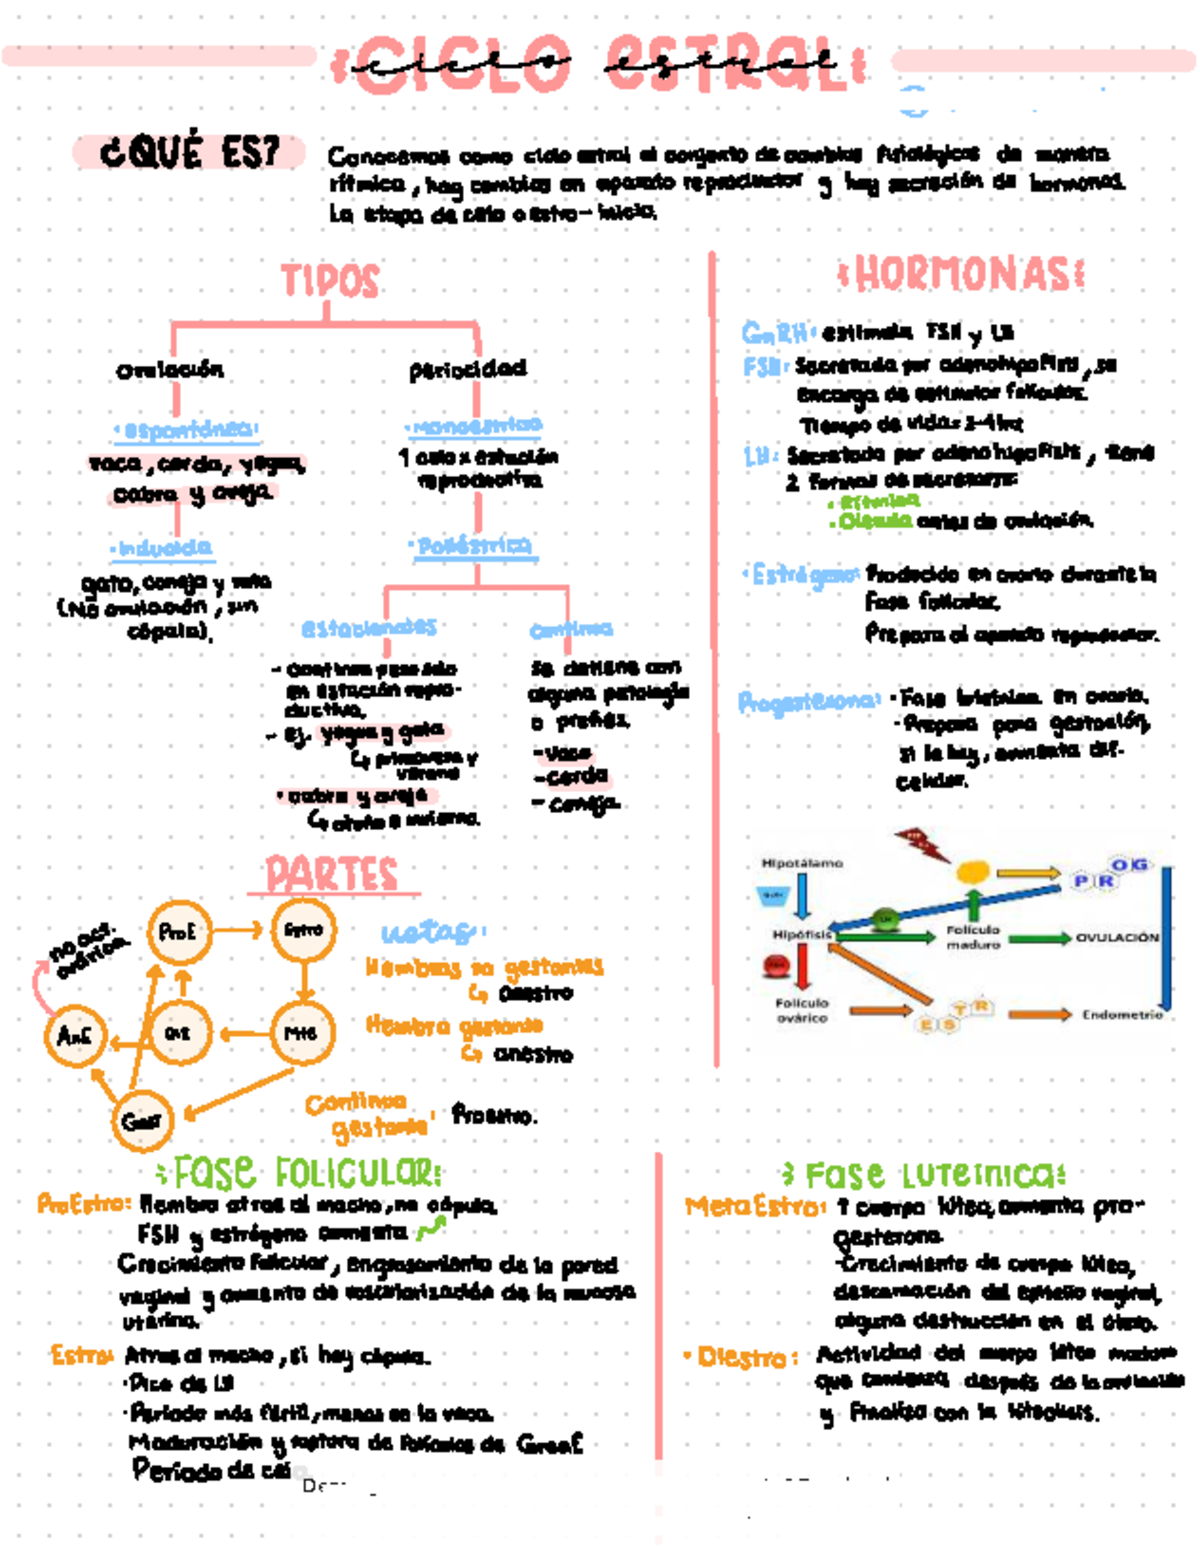 CICLO ESTRAL
ciclo estral
¿QUÉ ES?
Conocemos como ciclo estral al conjunto de cambios fisiológicos de manera
rítmica, hay cambios en aparato reproductor y hay secreción de hormonas.
La etapa de celo o estro - inicio.
TIPOS
Ovulación
· espontánea:
vaca, cerda, yegua,
cabra y oveja
· Inducida
gato, coneja y
(No ovulación, sin
cópula).
periocidad
· Monoéstrica
1 celo x estación
reproductiva
· Poliéstrica
estacionales
- Continua pero solo
en estación repro-
ductiva.
- ej. yegua y gata
↳ primavera y
verano
· cabra y oveja
↳ otoño e invierno.
continua
Se detiene con
alguna patología
o preñez.
- vaca
- cerda
- coneja.
HORMONAS
GnRH: estimula FSH y LH
FSH: Secretada por adenohipofisis, se
encarga de estimular folículos.
Tiempo de vida: 2-4 hrs
LH: Secretada por adenohipofisis, tiene
2 formas de secretarse:
· Rítmica
· Oleada antes de ovulación.
· Estrógeno: Producido en ovario durante la
Fase folicular.
Prepara al aparato reproductor.
Progesterona: · Fase luteínica en ovario.
· Prepara para gestación,
si la hay, aumenta dif.
celular.
Hipotálamo
GnRH
Hipófisis
LH
FSH
Folículo
maduro
OVULACIÓN
PROG
Folículo
ovárico
ESTR
Endometrio
PARTES
no act.
ovárica.
ProE
Estro
AnE
DiE
MtE
Gest
notas:
Hembras no gestantes
↳ anestro
Hembra gestante
↳ anestro
Continua
gestante: Proestro.
FASE FOLICULAR:
ProEstro: Hembra atrae al macho, no cópula.
FSH y estrógeno aumenta
Crecimiento folicular, engrosamiento de la pared
vaginal y aumento de vascularización de la mucosa
uterina.
Estro: Atrae al macho, si hay cópula.
· Pico de LH
· Periodo más fértil, menos en la vaca.
Maduración y ruptura de folículos de GraaF.
Periodo de celo
FASE LUTEINICA:
MetaEstro: ↑ cuerpo lúteo, aumenta pro-
gesterona
· Crecimiento de cuerpo lúteo,
descamación del epitelio vaginal,
alguna destrucción en el útero.
· Diestro: Actividad del cuerpo lúteo maduro
que comienza después de la ovulación
y finaliza con la luteolisis.